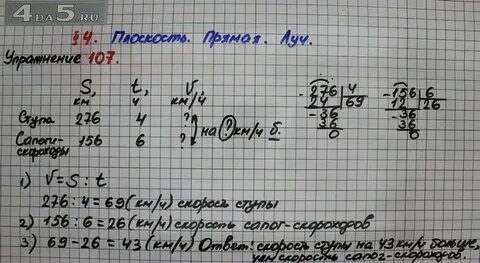 4да5.ru
§4. Плоскость. Прямая. Луч.
Упражнение 107.
S, км t, ч V, км/ч
Ступа 276 4 ?
на ? км/ч б.
Сапоги-скороходы 156 6 ?
276 4
24 69
36
36
0
156 6
12 26
36
36
0
1) V=S:t
276:4=69(км/ч) скорость ступы
2) 156:6=26(км/ч) скорость сапог-скороходов
3) 69-26=43(км/ч) Ответ: скорость ступы на 43 км/ч больше,
чем скорость сапог-скороходов.